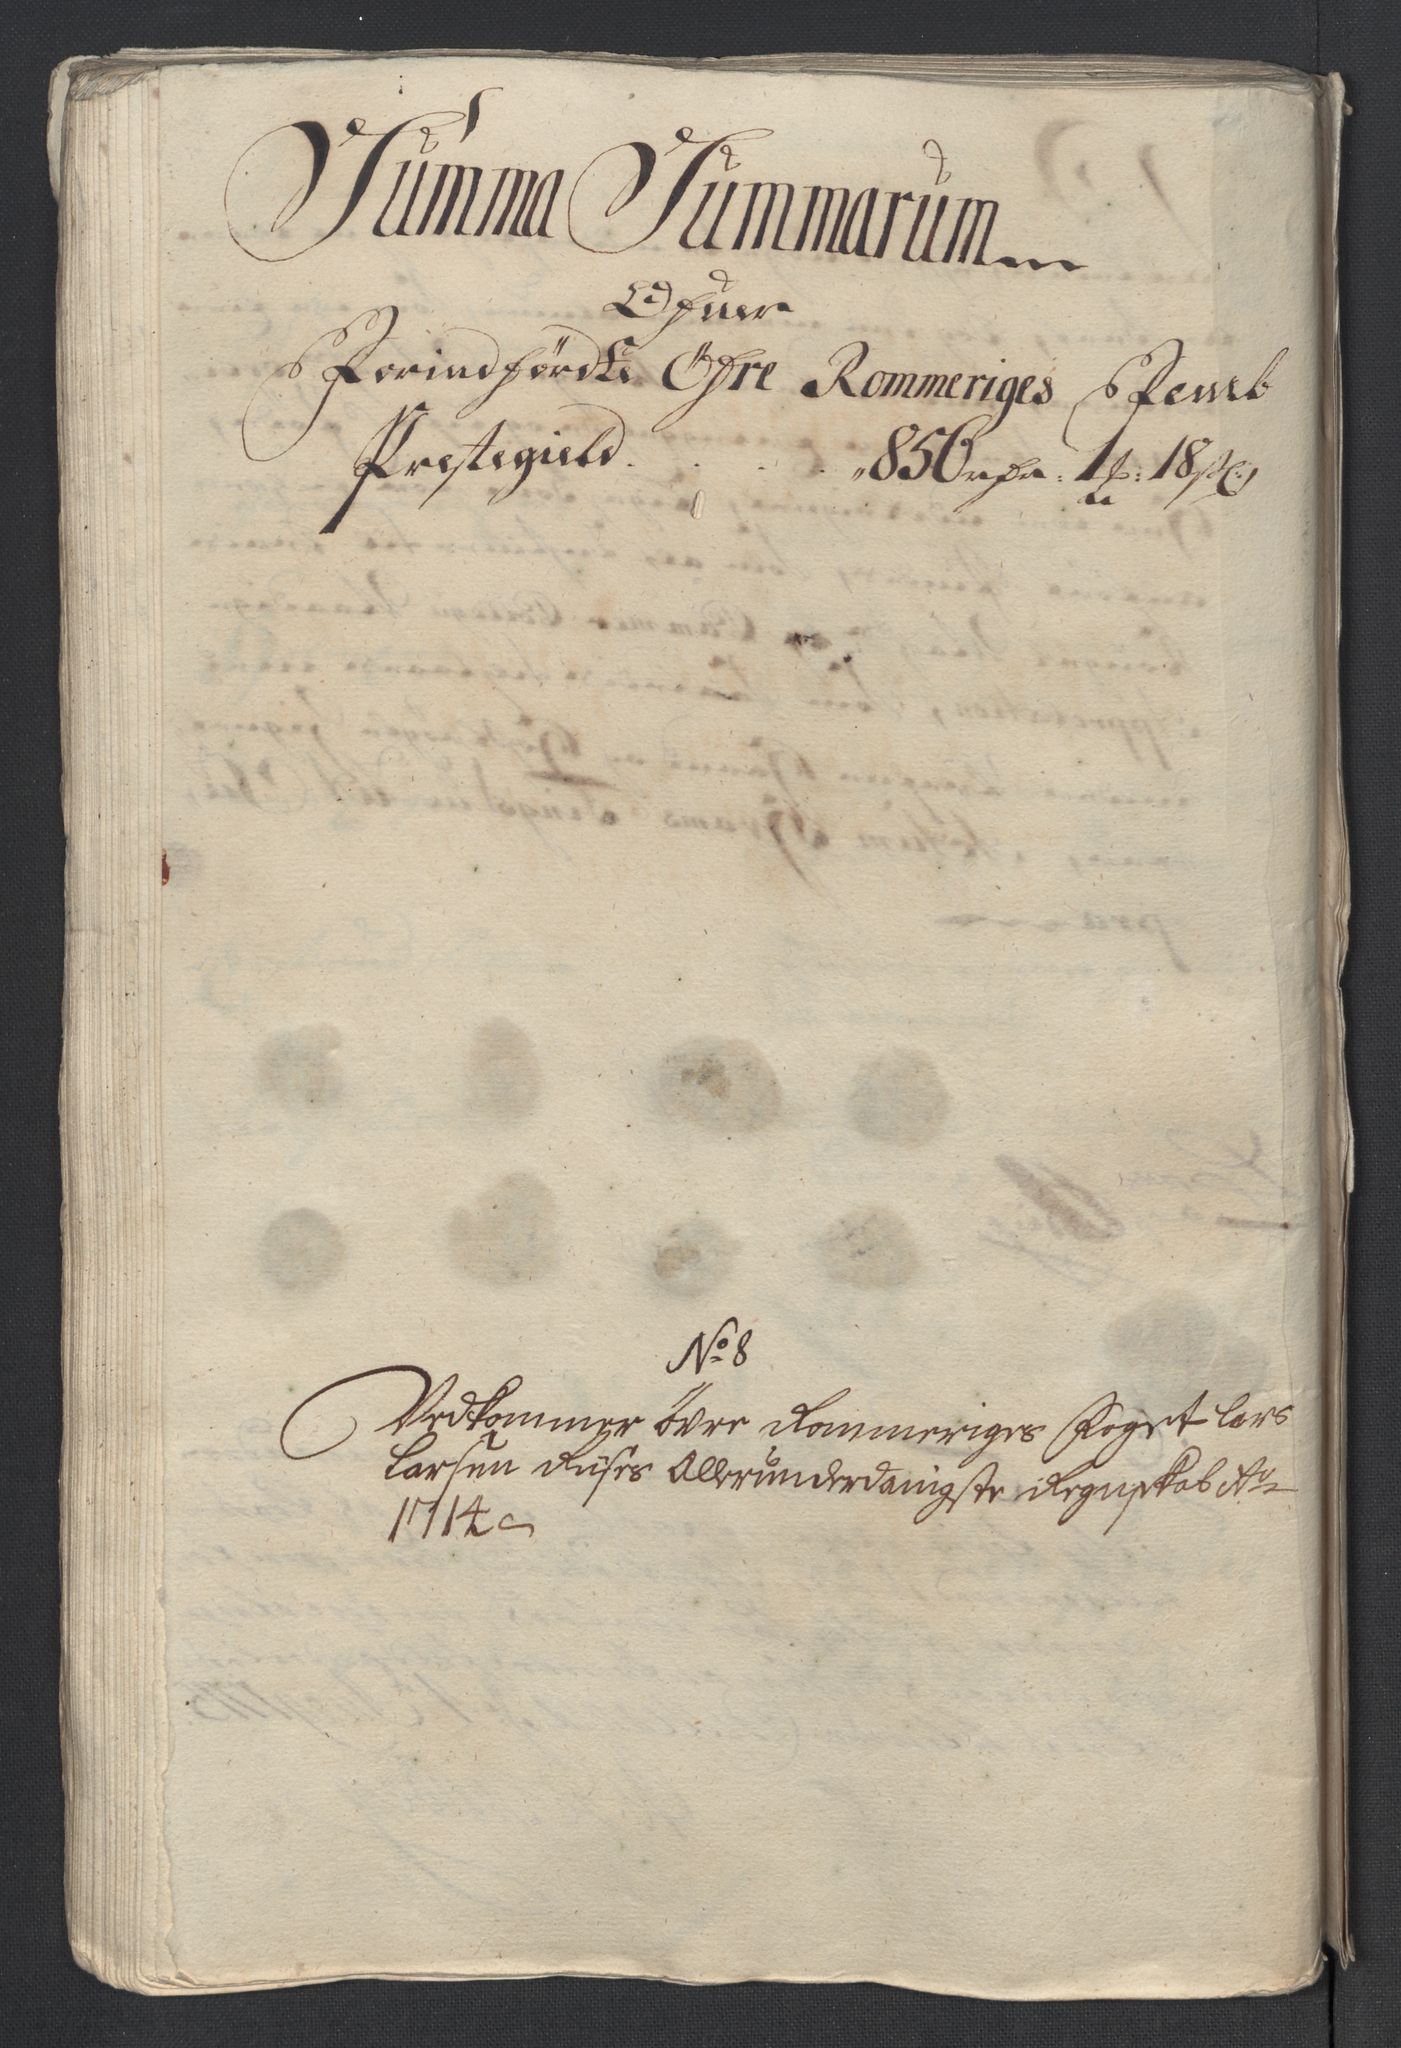 Summa Summarum
Ofuer
Forindfördte Öfre Rommeriges Femb
Prestegield . . . . . „ 856 rdr: 1 ₶: 18 ß
No 8
Vedkommer övre Rommeriges Foget Lars
Larsen Riises Allerunderdanigste Regnskab Ao
1714